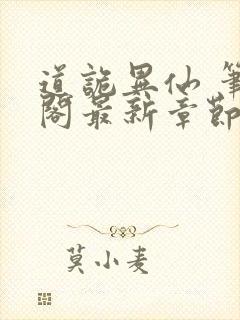 道詭異仙 筆
閣最新章節
莫小麦